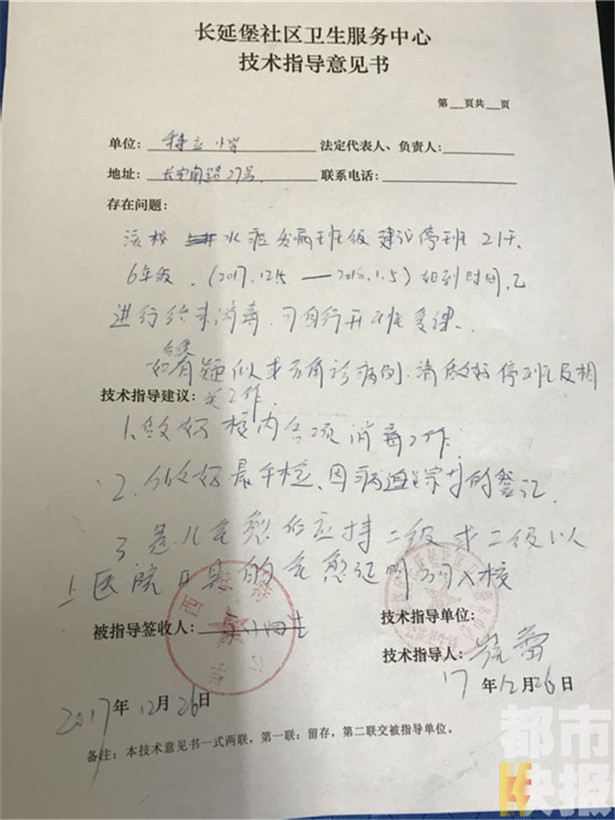 长延堡社区卫生服务中心
技术指导意见书
第__页共__页
单位: 特立小学 法定代表人、负责人:
地址: 长安南路27号 联系电话:
存在问题:
该校 水痘发病班级建议停班21天
6年级 (2017.12.15 — 2018.1.5) 如到时间,已
进行终末消毒,可自行开班复课.
如有疑似或确诊病例,请做好停班及相
技术指导建议: 关工作.
1.做好校内各项消毒工作.
2.做好晨午检、因病追踪的登记.
3 患儿痊愈后应持二级或二级以
上医院开具的痊愈证明方可入校
被指导签收人: 技术指导单位:
技术指导人:
2017年12月26日 17年12月26日
备注:本技术意见书一式两联,第一联:留存,第二联交被指导单位。
都市
快报